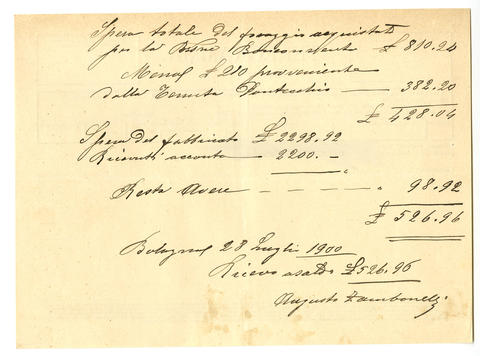 Spesa totale del foraggio acquistato
per la Bovine Buonconvento £ 810.24
Meno £ 210 proveniente
dalla Tenuta Pontecchio — 382.20
£ 428.04
Spesa del fabbricato £ 2298.92
Ricevuti acconto — 2200.—
Resta Avere — — — — 98.92
£ 526.96
Bologna 28 Luglio 1900
Ricevo a saldo £ 526.96
Augusto Zambonelli